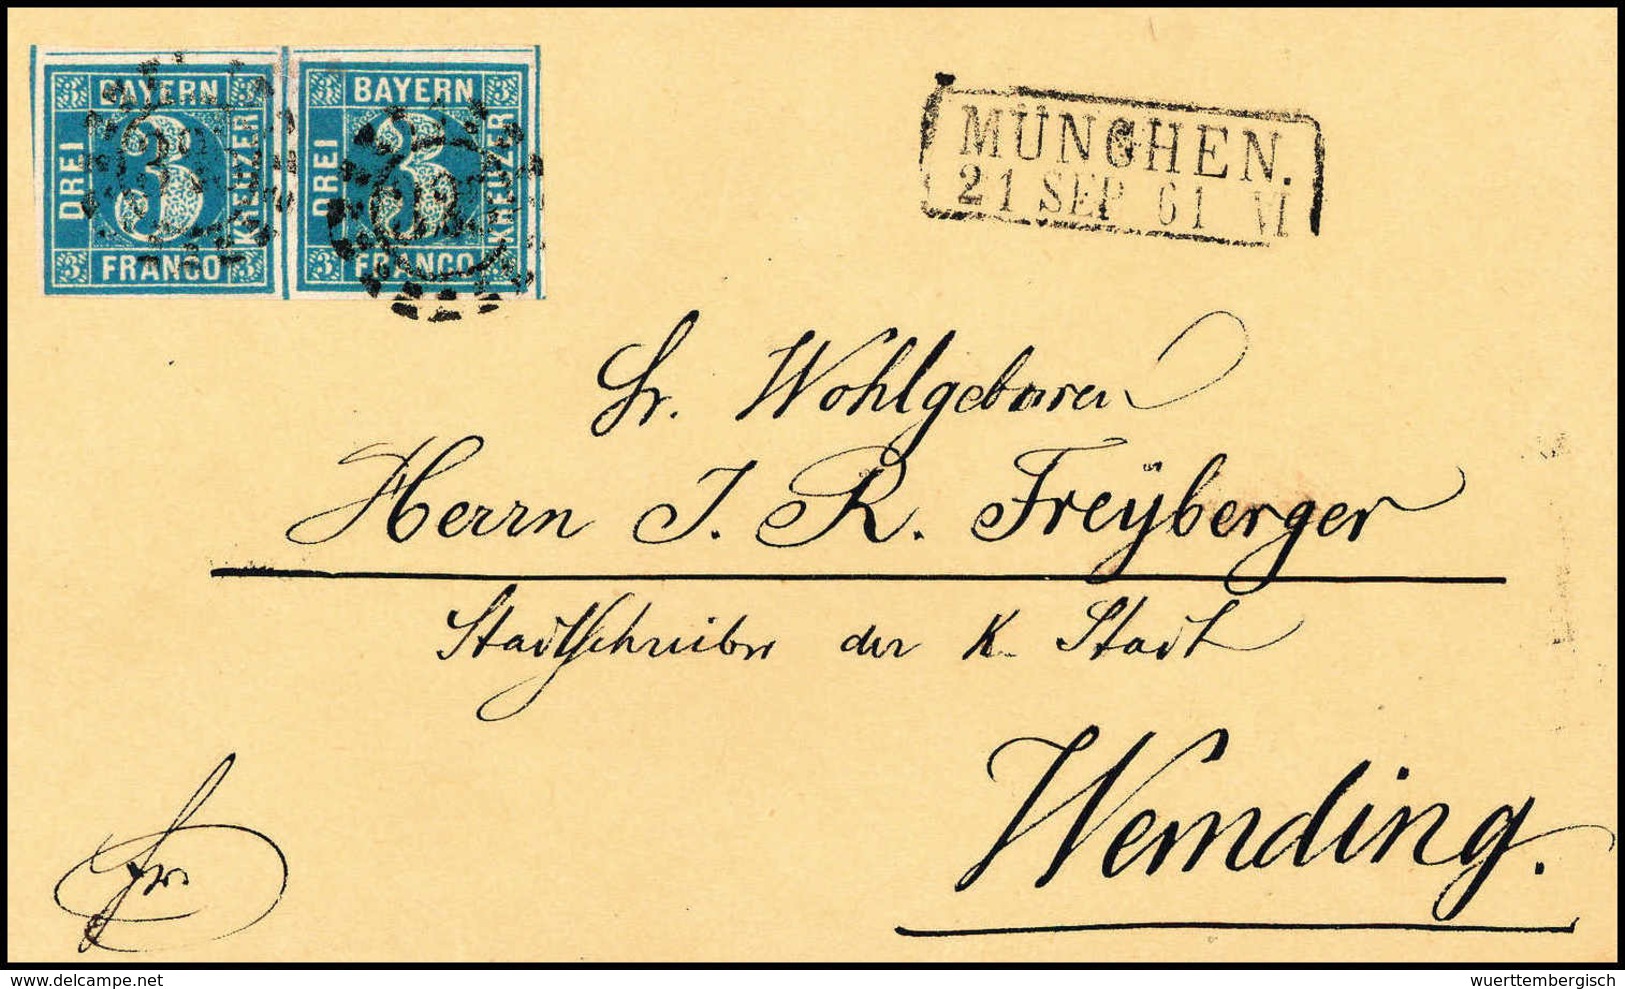 BAYERN
DREI
KREUZER
FRANCO
3
3
3
3
3
BAYERN
DREI
KREUZER
FRANCO
3
3
3
3
3
MÜNCHEN.
21 SEP 61 VI
Sr. Wohlgeboren
Herrn J. R. Freÿberger
Stadtschreiber der K. Stadt
Wemding.
fr.
www.delcampe.net
wuerttembergisch